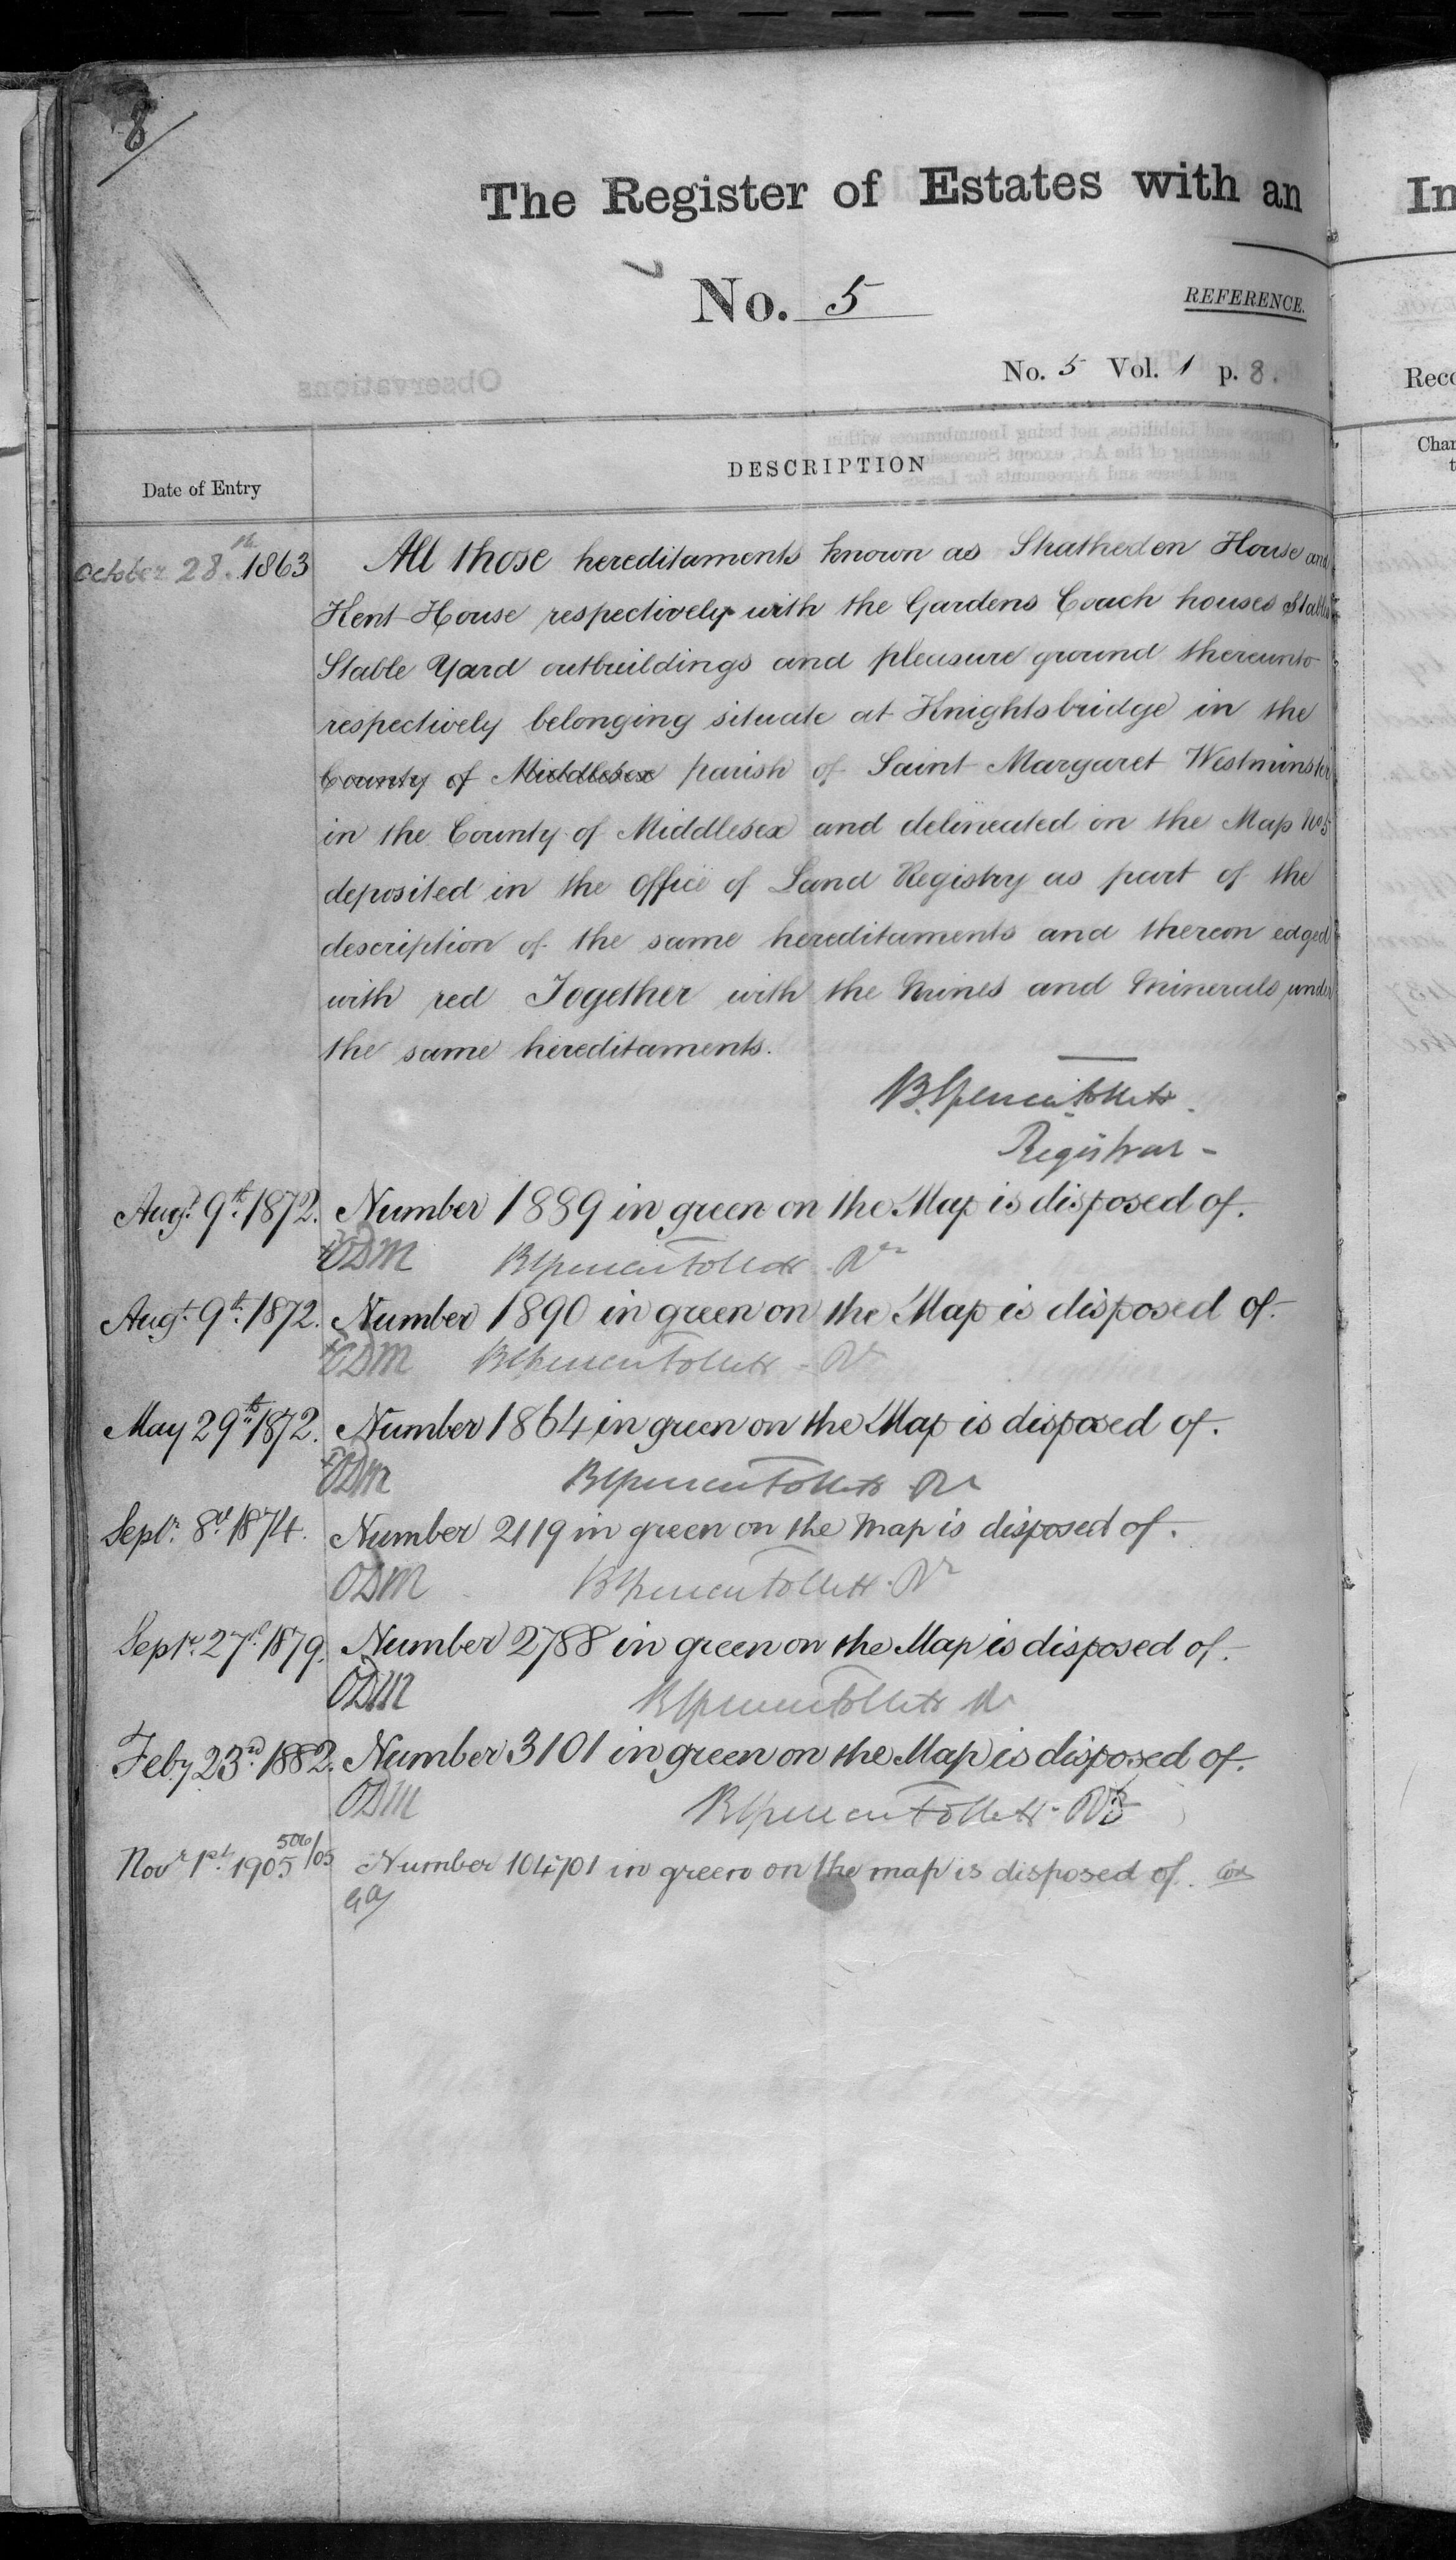 8
The Register of Estates with an
No. 5
REFERENCE.
No. 5 Vol. 1 p. 8.
Observations
DESCRIPTION
Date of Entry
October 28th. 1863
All those hereditaments known as Stratheden House and
Kent House respectively with the Gardens Coach houses Stables
Stable Yard outbuildings and pleasure ground thereunto
respectively belonging situate at Knightsbridge in the
County of Middlesex parish of Saint Margaret Westminster
in the County of Middlesex and delineated on the Map No 5
deposited in the Office of Land Registry as part of the
description of the same hereditaments and thereon edged
with red Together with the Mines and Minerals under
the same hereditaments.
B. Spencer Follett.
Registrar -
Augt. 9th. 1872. Number 1889 in green on the Map is disposed of.
ODM BSpencer Follett Rr
Augt. 9th. 1872. Number 1890 in green on the Map is disposed of.
ODM BSpencer Follett - Rr
May 29th 1872. Number 1864 in green on the Map is disposed of.
ODM BSpencer Follett Rr
Septr. 8th 1874. Number 2119 in green on the Map is disposed of.
ODM BSpencer Follett. Rr
Septr. 27th 1879. Number 2788 in green on the Map is disposed of.
ODM BSpencer Follett Rr
Feby 23rd 1882. Number 3101 in green on the Map is disposed of.
ODM BSpencer Follett - Rr
Novr 1st. 1905 506/05 Number 104701 in green on the map is disposed of.
In
Reco
Char
t